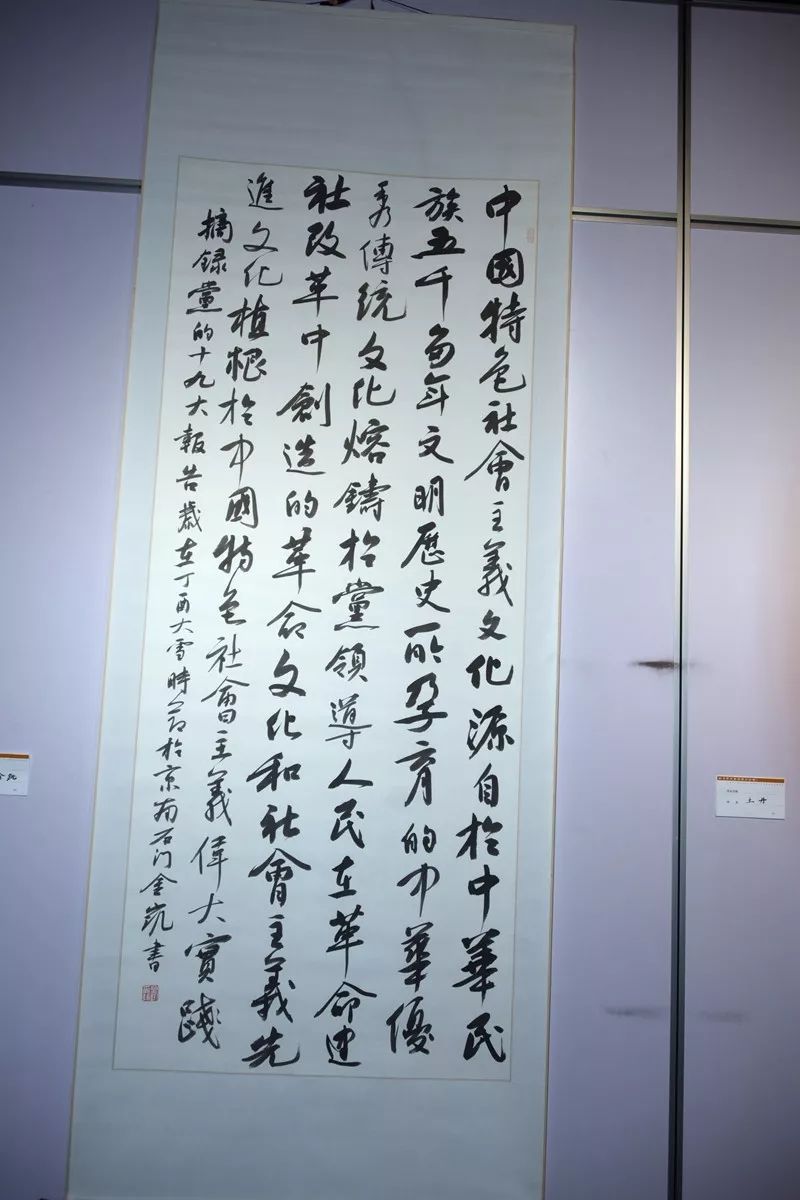 中國特色社會主義文化源自於中華民
族五千多年文明歷史所孕育的中華優
秀傳統文化熔鑄於黨領導人民在革命建
社改革中創造的革命文化和社會主義先
進文化植根於中國特色社會主義偉大實踐
摘録黨的十九大報告歲在丁酉大雪時节於京南石门金凯書